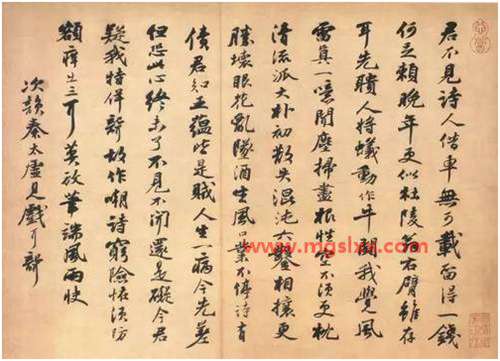 君不見詩人借車無可載留得一錢
何足賴晚年更似杜陵翁右臂雖存
耳先聵人將蟻動作牛鬪我覺風
雷真一噫聞塵掃盡根性空不須更枕
清流派大朴初散失混沌六鑿相攘更
勝壞眼花亂墜酒生風口業不停詩有
債君知五蘊皆是賊人生一病今先差
但恐此心終未了不見不聞還是礙今君
疑我特佯聾故作嘲詩窮險怪須防
額痒出三耳莫放筆端風雨快
次韻秦太虛見戲耳聾
www.mgslxx.com